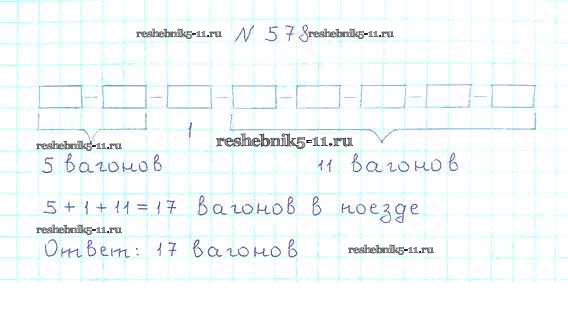 reshebnik5-11.ru № 578 reshebnik5-11.ru
1
reshebnik5-11.ru reshebnik5-11.ru
5 вагонов 11 вагонов
5 + 1 + 11 = 17 вагонов в поезде
reshebnik5-11.ru
Ответ: 17 вагонов reshebnik5-11.ru